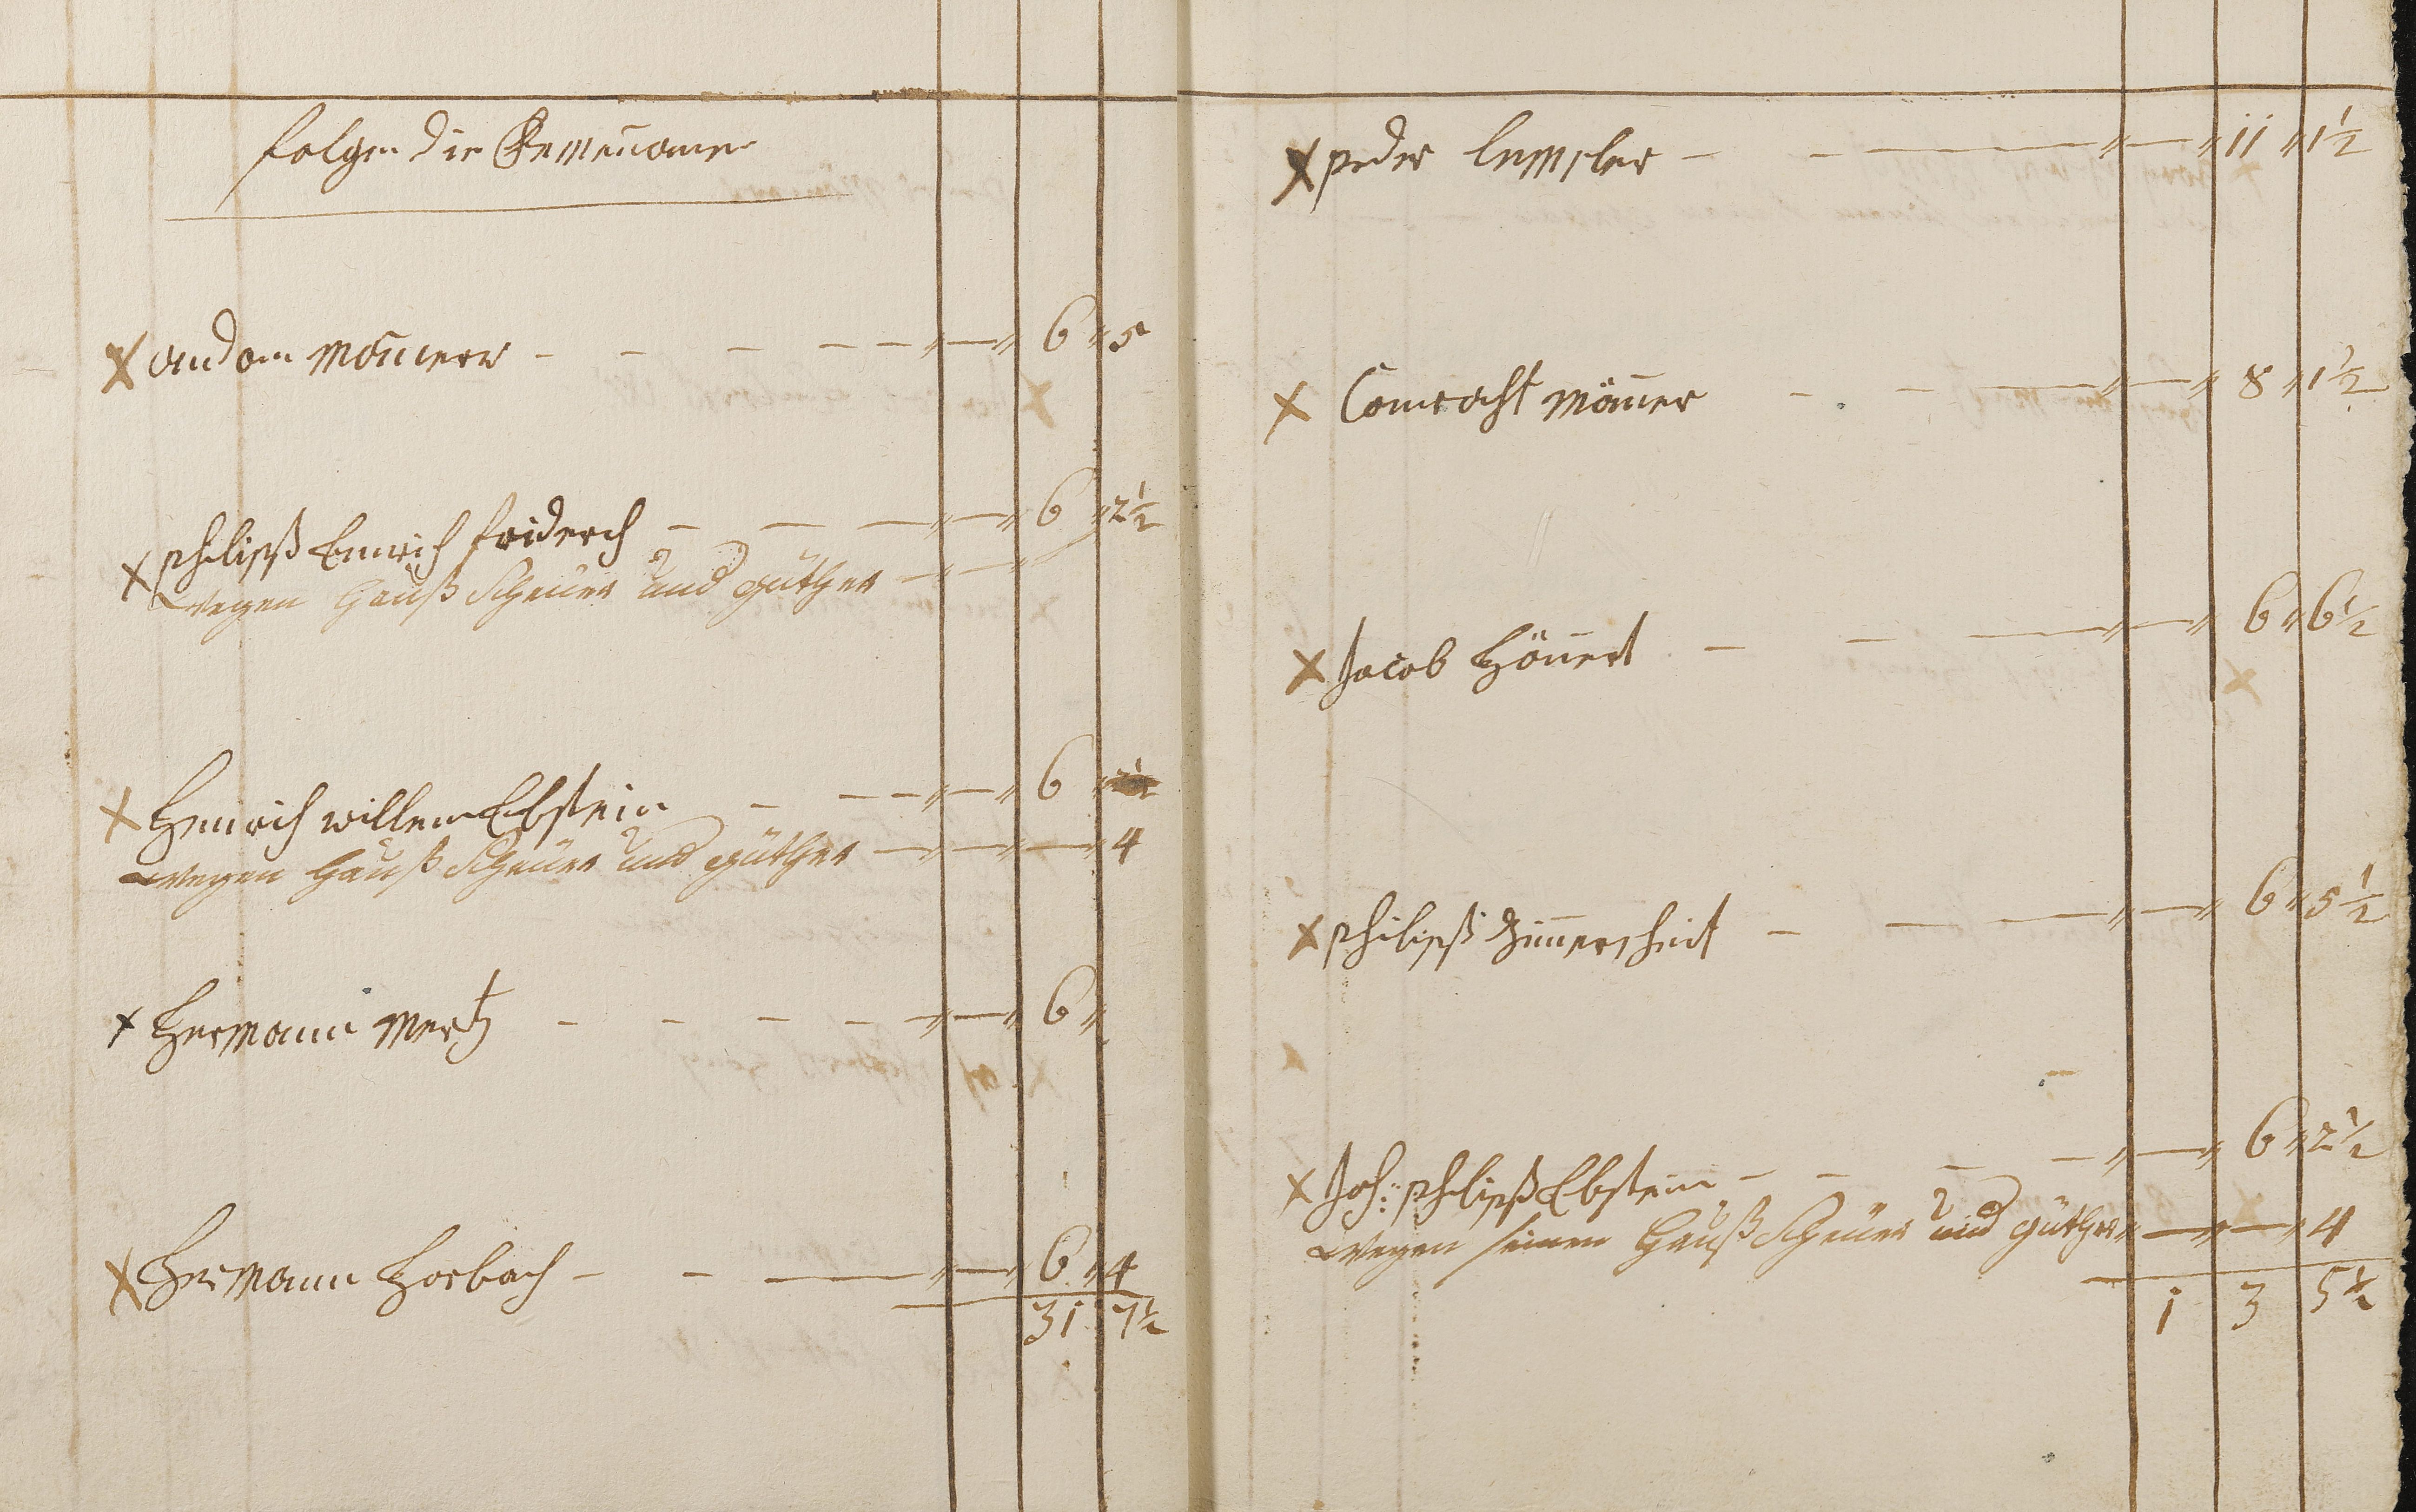 folgen die Gemeinᷠomer
X andom Mönnerr — — — — — — „ — „ 6 „ 5
X phlipß Emrich friderch — — — „ — „ 6 „ 2½
wegen Hauß Scheuer und güther — —
X Henrich willem Ebstein — — — „ — „ 6 „
wegen Hauß Scheuer und güther — „ — „ — „ 4
X Hermann Mertz — — — — — „ — „ 6 „
X Hermann Horbach — — — „ — „ 6 „ 4
31 7½
X peder lemler — — — „ — „ 11 „ 1½
X Conracht Mönner — — — „ — „ 8 „ 1½
X Jacob Hönnert — — — „ — „ 6 „ 6½
X philipß Zimmerscheit — — — „ — „ 6 „ 5½
X Joh: phlipß Ebstein — — — — „ — „ 6 „ 2½
wegen seinen Hauß Scheuer und güther „ — „ — „ 4
1 3 5½